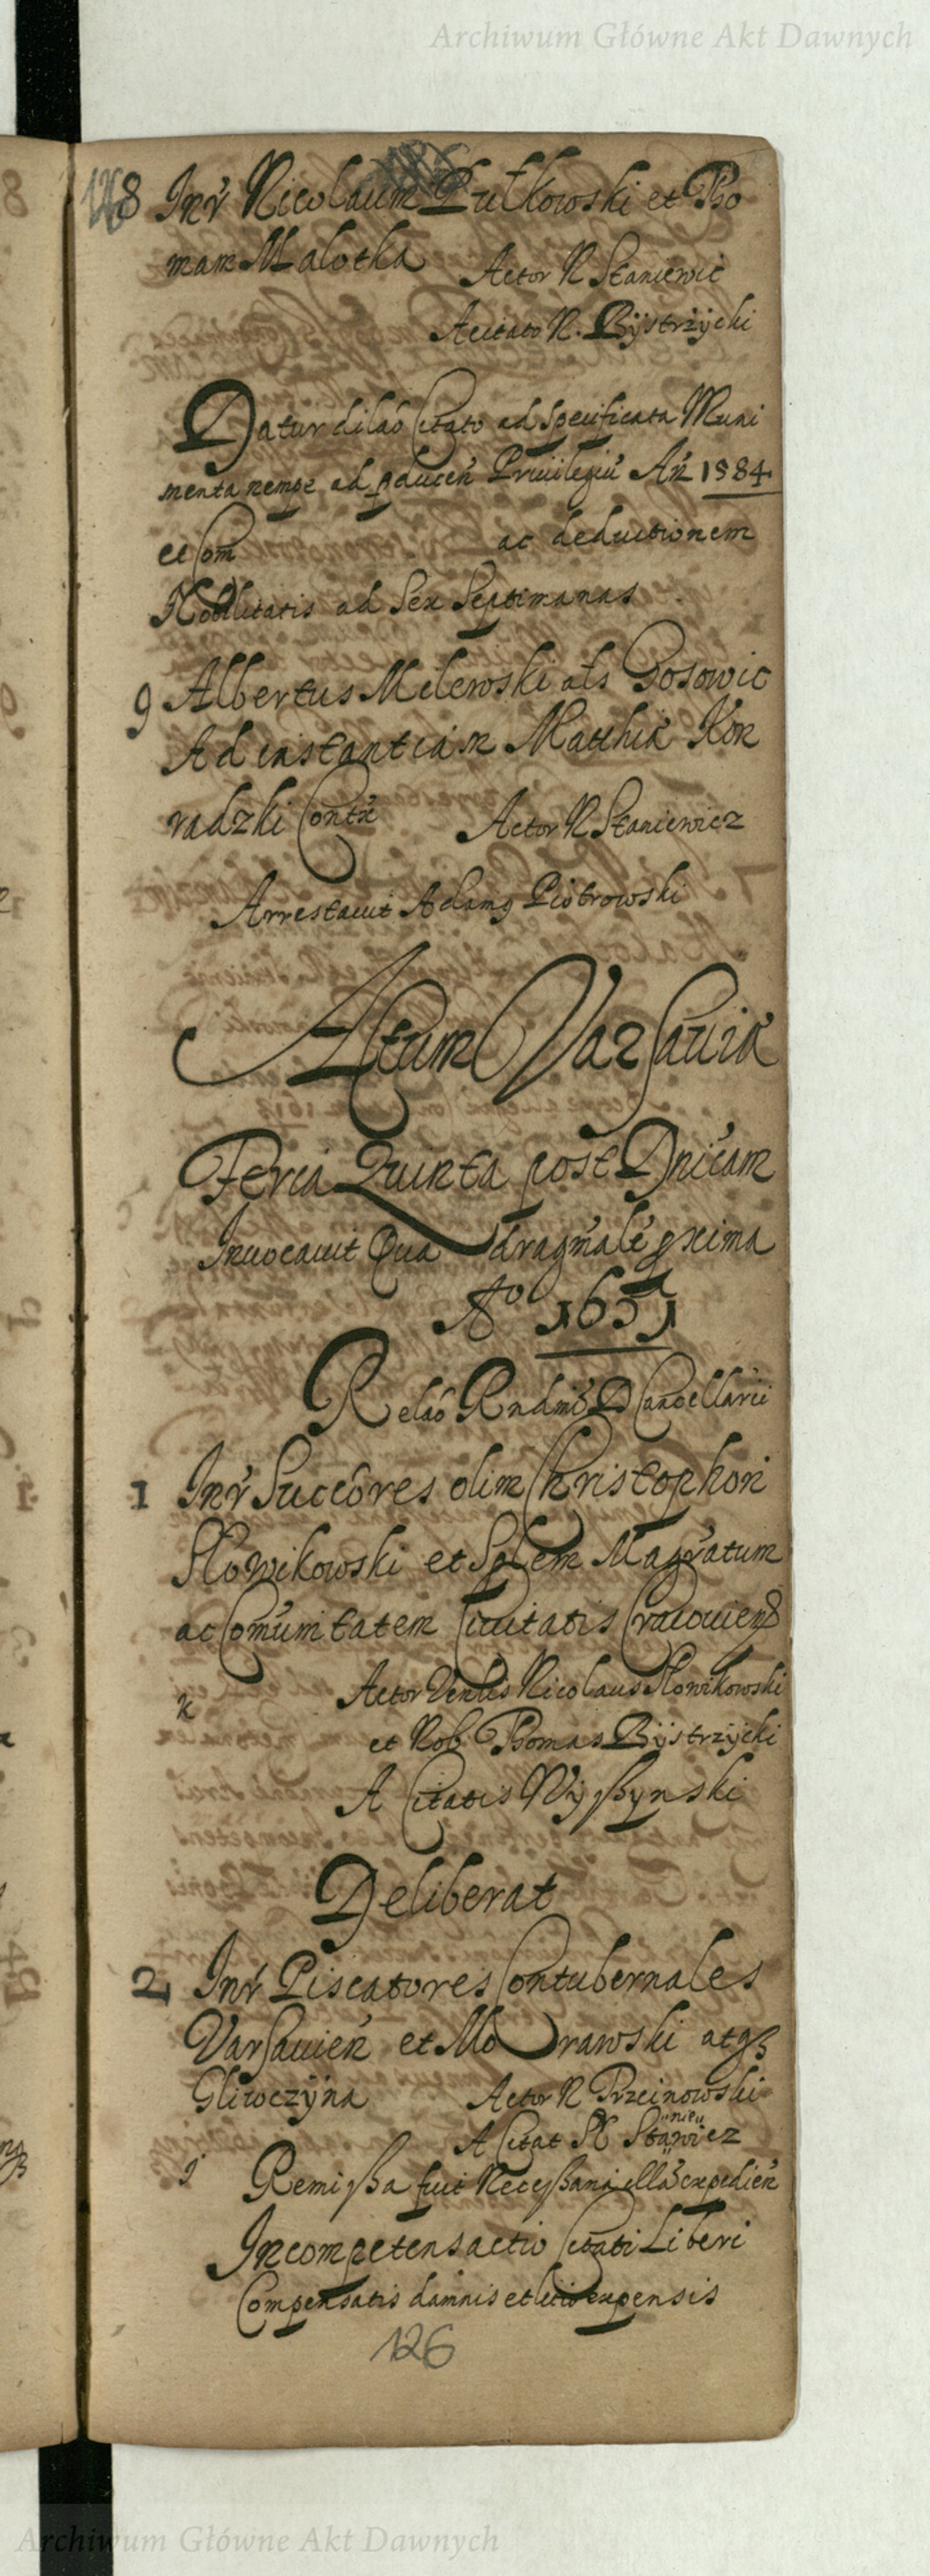 Archiwum Główne Akt Dawnych
8 Inr̃ Nicolaum Rutkowski et Tho
mam Malotka
Actor N Staniewic
A citato N. Bÿstrzÿcki
Datur dilaõ Citato ad specificata Muni
menta nempe ad ꝓducen̄ Privilegiũ An̄ 1584
et Com̃ ac deductionem
Nobilitatis ad Sex Septimanas
9 Albertus Milewski als Gosowic
Ad instantiam Matthiæ Kon
radzki Contr̃
Actor N Staniewicz
Arrestavit Adamꝰ Piotrowski
Actum Varsaviæ
Feria Quinta post Dnicam
Invocavit Quadragmalẽ ꝓxima
Aº 1651
Relaõ Rndmi D Cancellarii
1 Inr̃ Succõres olim Christophori
Slowikowski et Splem Magratum
ac Com̃unitatem Civitatis Cracovien̄
Actor Nicolaus Slowikowski
et Nob Thomas Bÿstrzÿcki
A Citatis Wÿszynski
Deliberat
2 Inr̃ Piscatores Contubernales
Varsavien̄ et Morawski atqꝫ
Gliwczÿna
Actor N Przeinowski
A Citat N Stanie wicz
Remissa fuit
Incompetens actio Citati Liberi
Compensatis damnis et litis expensis
126
Archiwum Główne Akt Dawnych